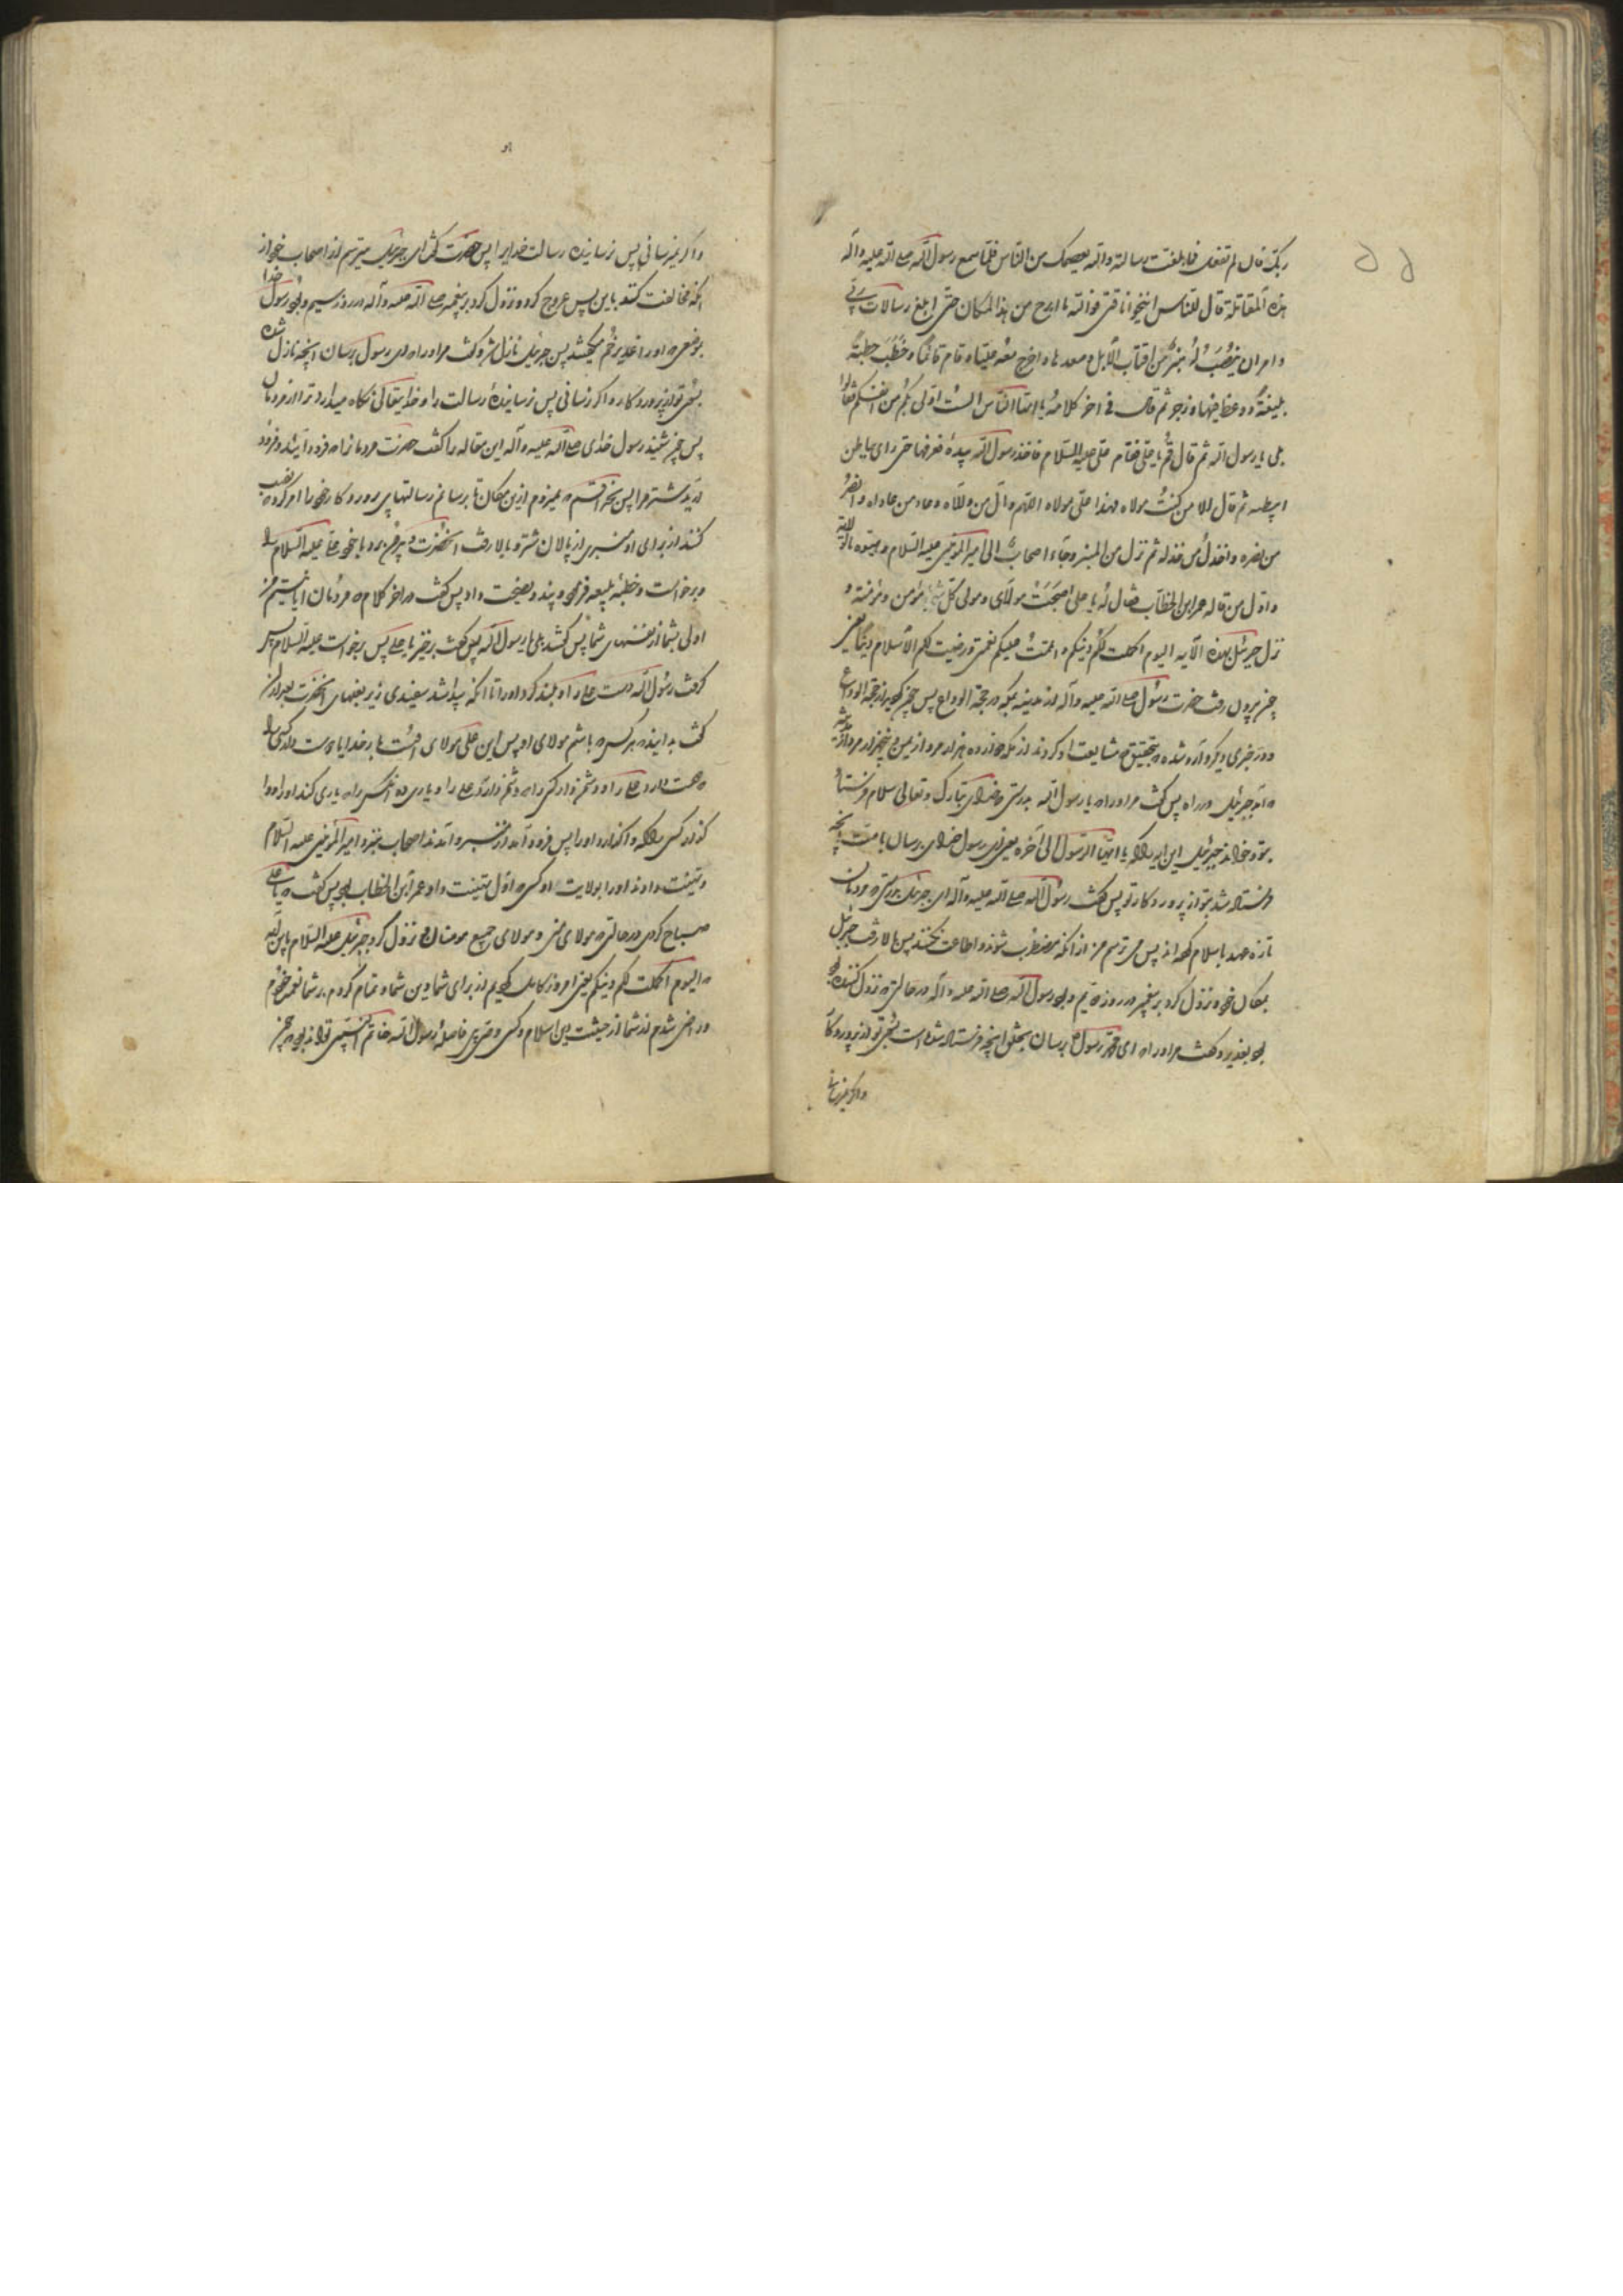 ۵۵
ربک فان لم تفعل فما بلغت رسالته والله یعصمک من الناس فلما سمع رسول الله صلی الله علیه وآله
هذه المقالة قال للناس انیخوا ناقتی فوالله ما ابرح من هذا المکان حتی ابلغ رسالات ربی
وامر ان ینصب له منبر من اقتاب الابل وصعدها واخرج معه علیا و قام قائما و خطب خطبة
بلیغة و وعظ فیها و زجر ثم قال فی اخر کلامه یا ایها الناس الست اولی بکم من انفسکم قالوا
بلی یا رسول الله ثم قال قم یا علی فقام علی علیه السلام فاخذ رسول الله بیده فرفعها حتی رای بیاض
ابطیه ثم قال الا من کنت مولاه فهذا علی مولاه اللهم وال من والاه وعاد من عاداه وانصر
من نصره واخذل من خذله ثم نزل من المنبر وجاء اصحابه الی امیر المؤمنین علیه السلام وهنوه بالولایة
واول من قال له عمر ابن الخطاب فقال له یا علی اصبحت مولای ومولی کل مؤمن ومؤمنة و
نزل جبرئیل بهذه الآیه الیوم اکملت لکم دینکم واتممت علیکم نعمتی ورضیت لکم الاسلام دینا یعنی
چون بیرون رفت حضرت رسول صلی الله علیه وآله از مدینه بمکه در حجة الوداع پس چون از حجة الوداع
و در خبری دیگر وارد شده بتحقیق مشایعت او کردند از مکه دوازده هزار مرد از یمن و پنجهزار مرد از مدینه
آمد جبرئیل در راه پس گفت مر او را یا رسول الله بدرستی خدای تبارک وتعالی سلام فرستاد
بتو و خواند جبرئیل این ایه را که یا ایها الرسول الی آخره یعنی ای رسول خدای برسان بامتت انچه
فرستاده شد بتو از پروردکار تو پس گفت رسول الله صلی الله علیه وآله ای جبرئیل بدرستی مردمان
تازه عهد باسلام اند پس می ترسم من از انکه مضطرب شوند و اطاعت نکنند پس بالا رفت جبرئیل
بمکان خود و نزول کرد بر پیغمبر در روز دویم و بود رسول الله صلی الله علیه وآله در حالتی نزول کننده بود
بغدیر و گفت مر او را ای محمد رسول برسان بخلق انچه فرستاده شده است بسوی تو از پروردکار
و اگر نرسانی
و اگر نرسانی پس نرسانیده رسالت خدایرا پس حضرت گفت ای جبرئیل میترسم از اصحاب خود از
انکه مخالفت کنند با من پس عروج کرد و نزول کرد بر پیغمبر صلی الله علیه وآله در روز سیم و بود رسول خدا
بموضعی او را غدیر خم میگفتند پس جبرئیل نازل شد و گفت مر او را ای رسول برسان انچه نازل شده
بسوی تو از پروردکار و اگر نرسانی پس نرسانیدهٔ رسالت را و خدایتعالی نگاه میدارد ترا از مردمان
پس چون شنید رسول خدای صلی الله علیه وآله این مقاله را گفت حضرت مردمان را فرود آیند و فرود
آرید شتر مرا پس بخدا قسم نمیروم ازین مکان تا برسانم رسالتهای پروردکار خود را امر کرد نصب
کنند از برای او منبری از پالان شتر و بالا رفت آنحضرت و بیرون برد با خود علی علیه السلام را
و برخواست و خطبه بلیغه فرمود و پند و نصیحت داد پس گفت در اخر کلام مردمان ایا نیستم من
اولی بشما از نفسهای شما پس گفتند بلی یا رسول الله پس گفت برخیز یا علی پس برخواست علیه السلام پس
گرفت رسول الله دست علی را و بلند کرد او را تا انکه پیدا شد سفیدی زیر بغلهای آنحضرت بعد از ان
گفت بدانید هر کس من باشم مولای او پس این علی مولای اوست بارخدایا دوست دار کسی را
دوست دارد علی را و دشمن دار کسی را دشمن دارد علی را و یاری ده آنکس را یاری کند او را و
گذار کسی را که واگذارد او را پس فرود آمد از منبر و آمدند اصحاب بنزد امیر المؤمنین علیه السلام
و تهنیت دادند او را بولایت او کسی اول تهنیت داد عمر ابن الخطاب بود پس گفت یا علی
صباح کردی در حالتی مولای منی و مولای جمیع مومنان و نزول کرد جبرئیل علیه السلام باین ایه
الیوم اکملت لکم دینکم یعنی امروز کامل کردیم از برای شما دین شما و تمام کردم بر شما نعمت خود
و راضی شدم از شما از حیثیت دین اسلام